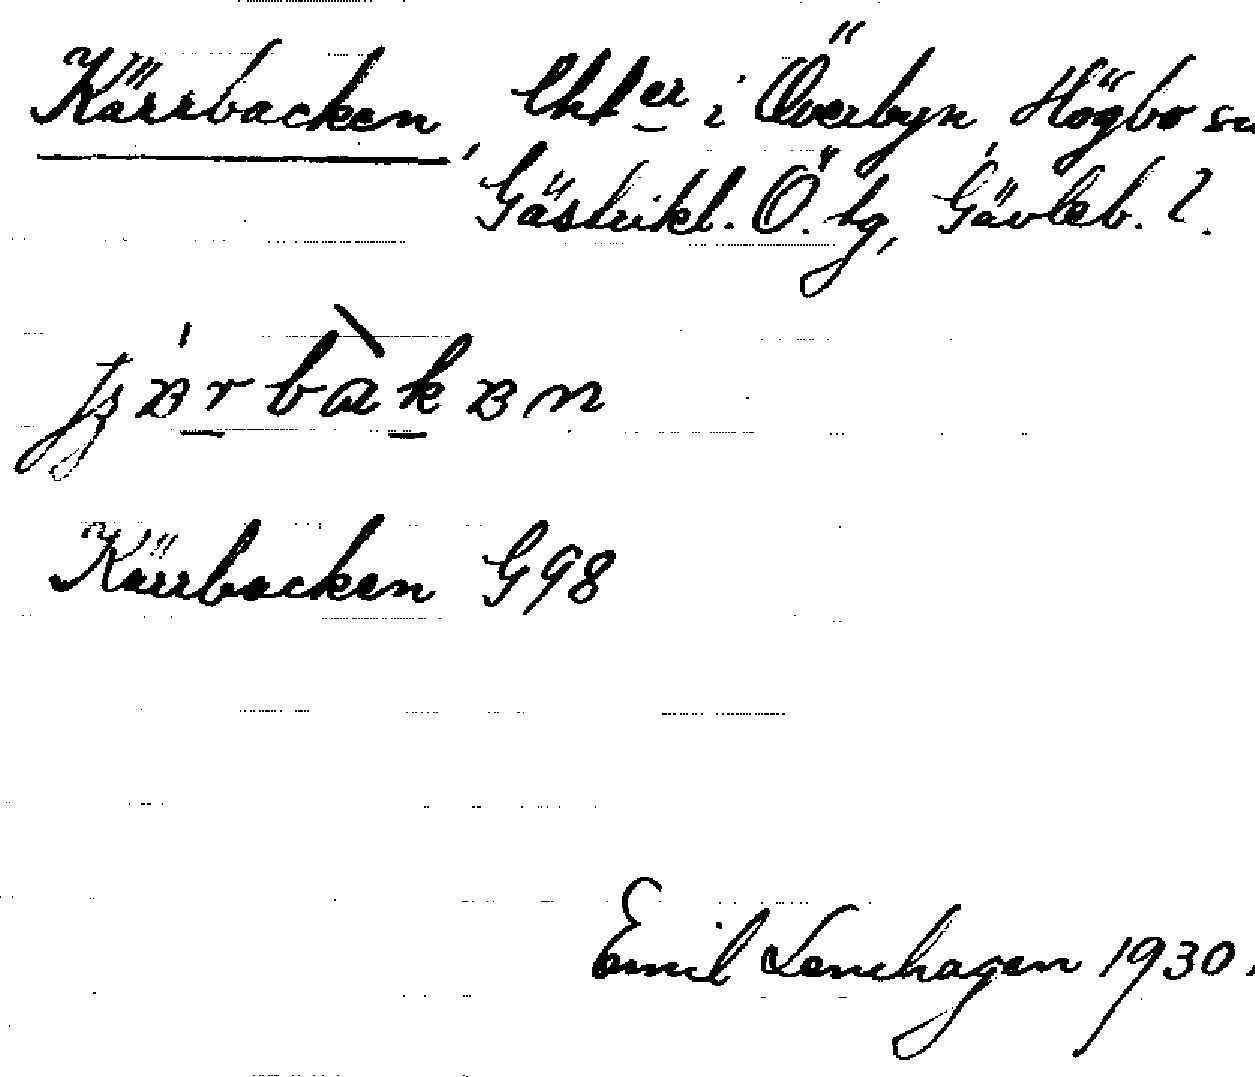 Kärrbacken, lht er i Överbyn Högbo sn
Gästrikl. Ö. tg, Gävleb. l.
Kärrbacken G98
Emil Lenhagen 1930.